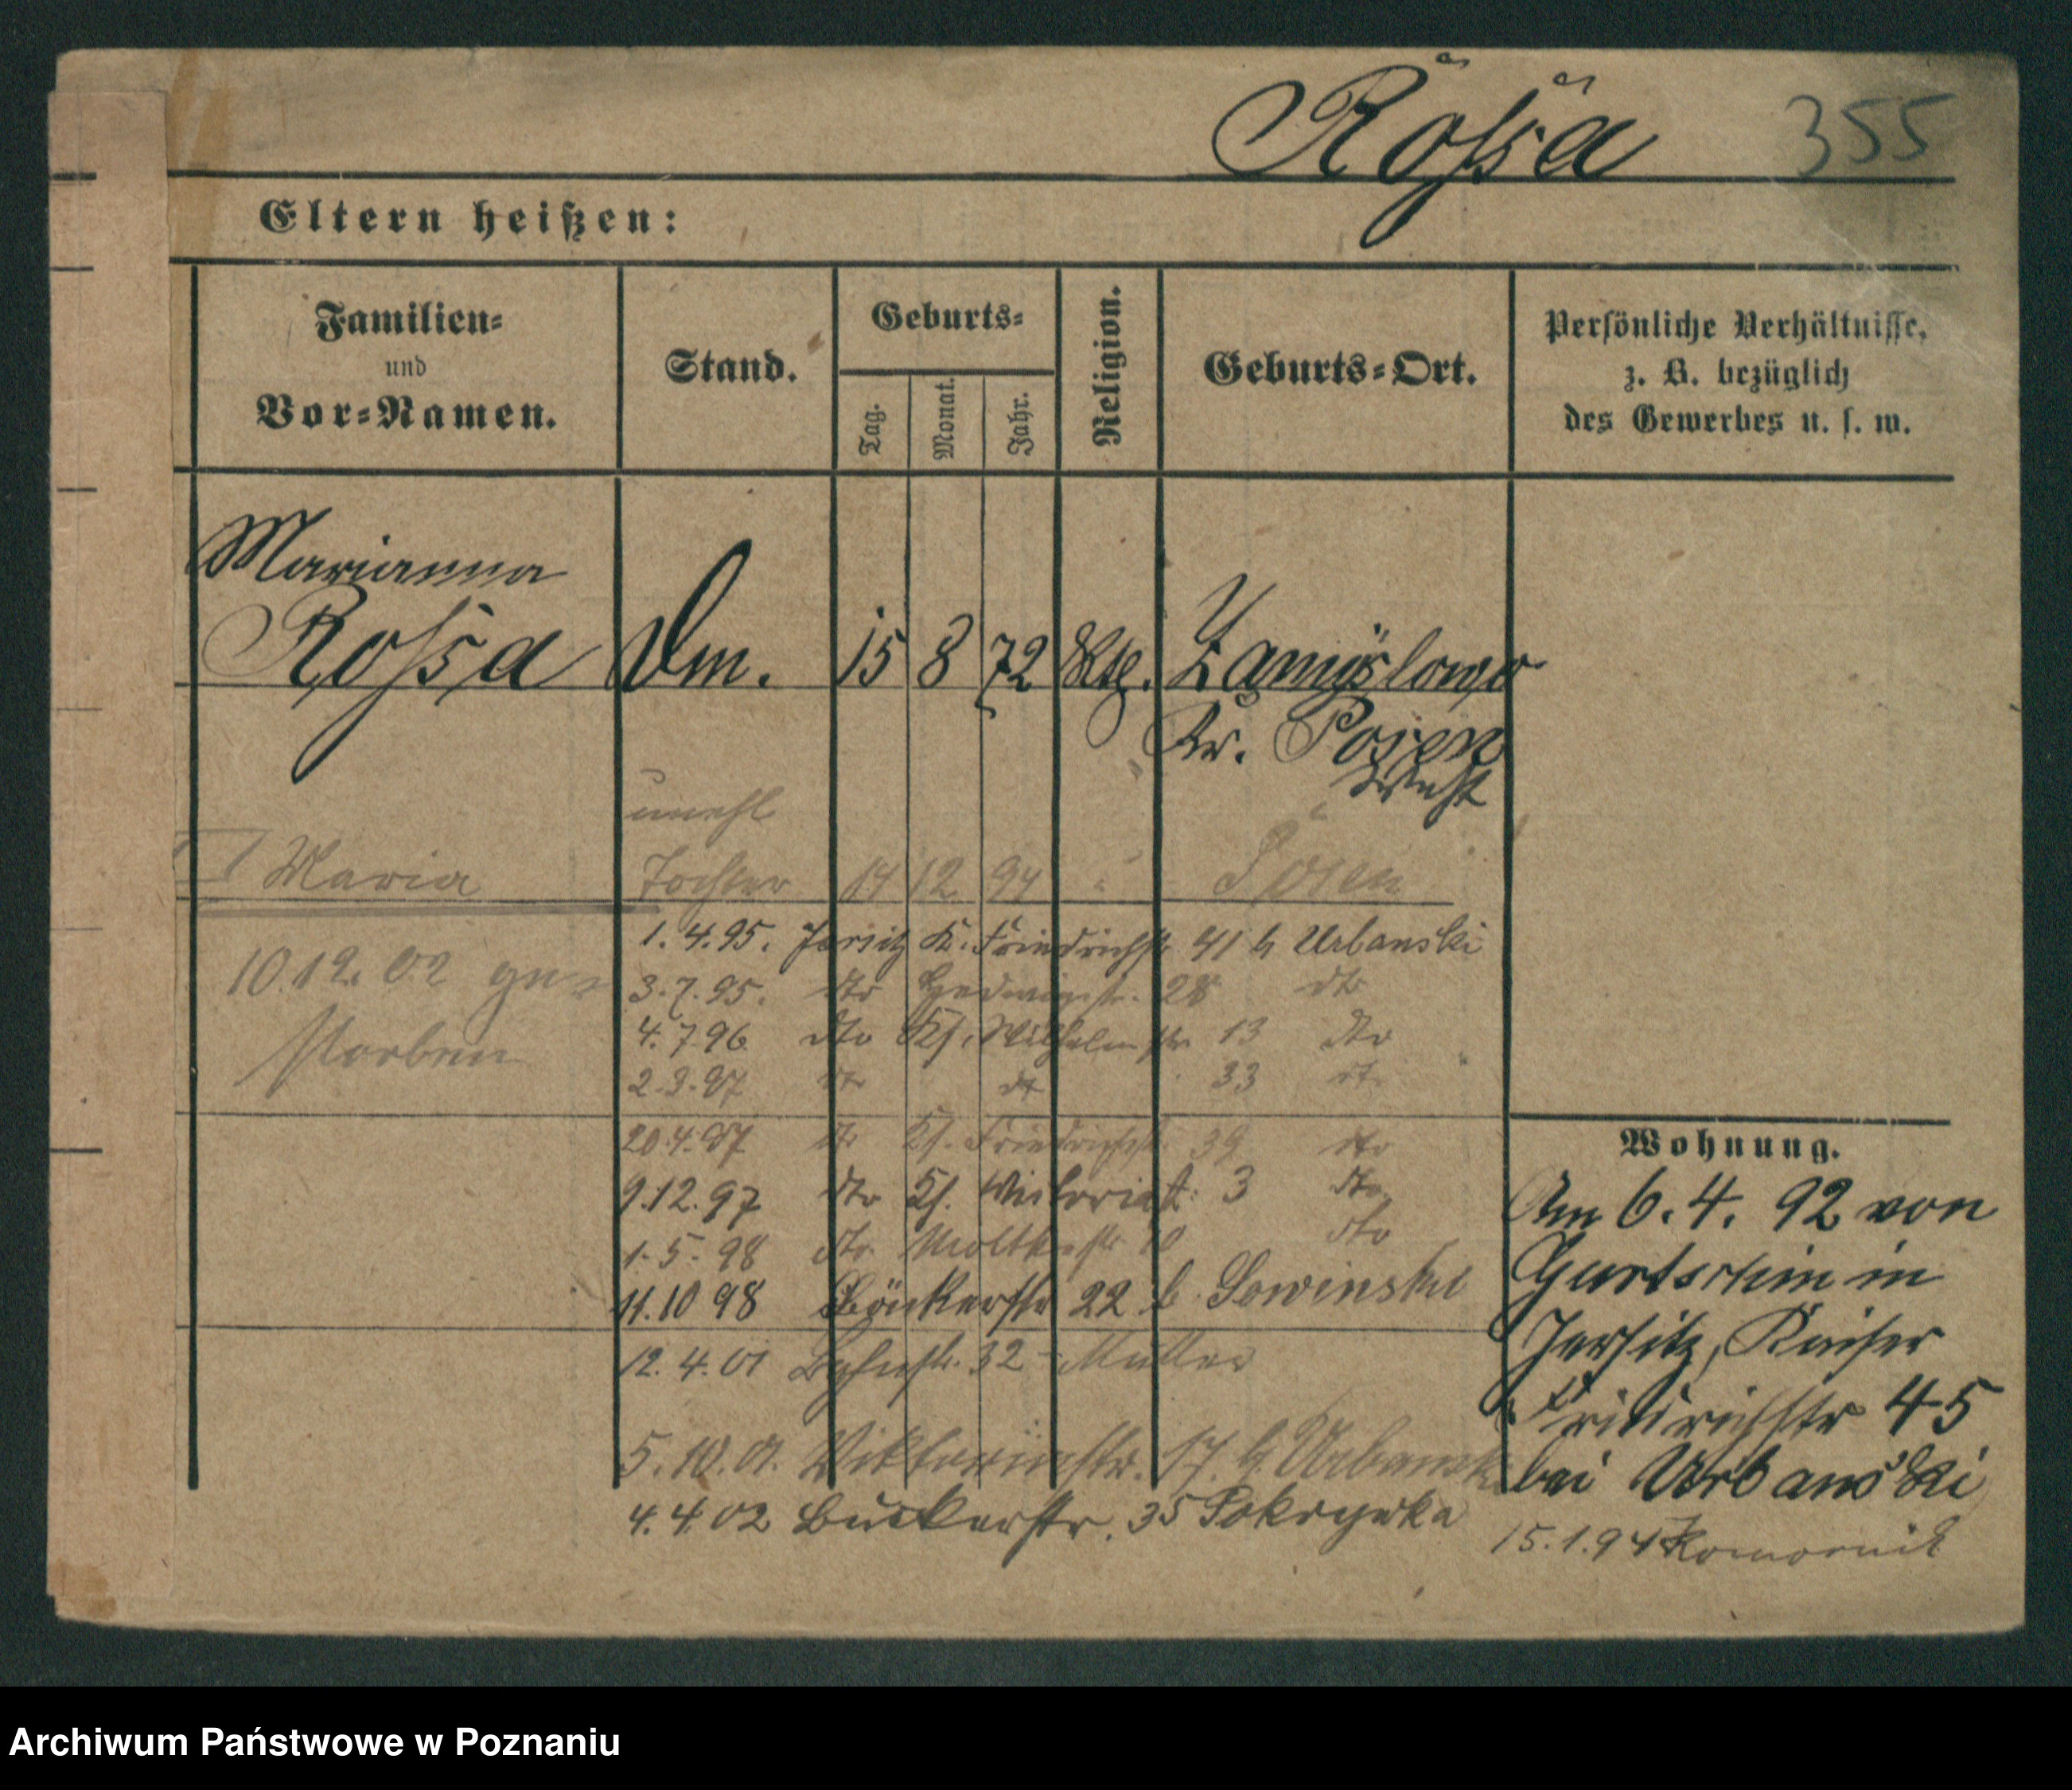 Rossa 355
Eltern heißen:
Familien=
und
Vor=Namen.
Stand.
Geburts=
Tag.
Monat.
Jahr.
Religion.
Geburts=Ort.
Persönliche Verhältnisse,
z. B. bezüglich
des Gewerbes u. s. w.
Marianna
Rossa Dm. 15 8 72 Kth. Zamyslowo
Kr. Posen
West
unehl
Maria Tochter 14 12 94 " Posen
10.12.02 ge=
storben
1.4.95. Jersitz K. Friedrichstr 41 b Urbanski
3.7.95. dto Hedwigstr. 28 dto
4.7.96 dto Ks. Wilhelmstr 13 dto
2.3.97 dto dto 33 dto
20.4.97 dto Ks. Friedrichstr. 39 dto
9.12.97 dto Ks. Victoriast. 3 dto
1.5.98 dto Moltkestr 10 dto
11.10 98 Bäckerstr 22 b. Sowinski
12.4.01 32 Müller
5.10.01. Viktoriastr. 17. b. Urbanski
4.4.02 Buckerstr. 35 Pokrywka
Wohnung.
Am 6.4.92 von
Gurtschin in
Jersitz, Kaiser
Friedrichstr 45
bei Urbanski
15.1.94 Komornik
Archiwum Państwowe w Poznaniu